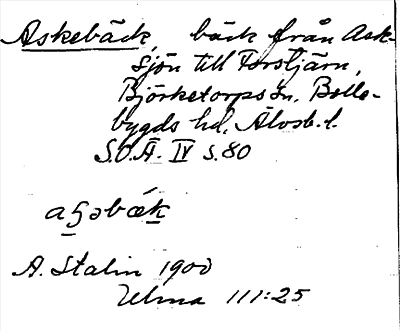 Askebäck, bäck från Ask-
sjön till Torstjärn,
Björketorps sn, Bolle-
bygds hd, Älvsb. l.
S.O.Ä. IV s. 80
aʂəbæk
A. Stalin 1900
Ulma 111:25